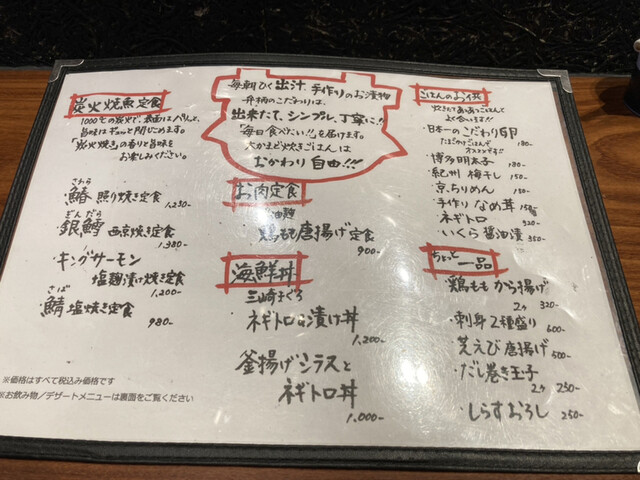 炭火焼魚定食
1000℃の炭火で、表面はパリッと、
旨味はギュッと閉じこめます。
"炭火焼き"の香りと旨味を
お楽しみください。
さわら
・鰆 照り焼き定食
1,250-
ぎんだら
・銀鱈 西京焼き定食
1,380-
・キングサーモン
塩麹漬け焼き定食
1,200-
さば
・鯖 塩焼き定食
980-
※価格はすべて税込み価格です
※お飲み物／デザートメニューは裏面をご覧ください
毎朝ひく出汁、手作りのお漬物
弁柄のこだわりは、
出来たて、シンプル、丁寧に!!
「毎日食べたい!!」を届けます。
大かまど炊きごはんは
おかわり自由!!!
お肉定食
油麹
鶏もも唐揚げ定食
900-
海鮮丼
三崎まぐろ
・ネギトロの漬け丼
1,200-
・釜揚げシラスと
ネギトロ丼
1,000-
ごはんのお供
炊きたてあつあつごはんと
よく合います!!
・日本一のこだわり卵
たまごかけごはんで
オススメです!!
180-
・博多明太子 180-
・紀州 梅干し 150-
・京ちりめん 150-
・手作り なめ茸 150-
・ネギトロ 320-
・いくら醤油漬 350-
ちょっと一品
・鶏もも から揚げ
2ヶ 320-
・刺身2種盛り 600-
・芝えび唐揚げ 500-
・だし巻き玉子
2ヶ 250-
・しらすおろし 250-